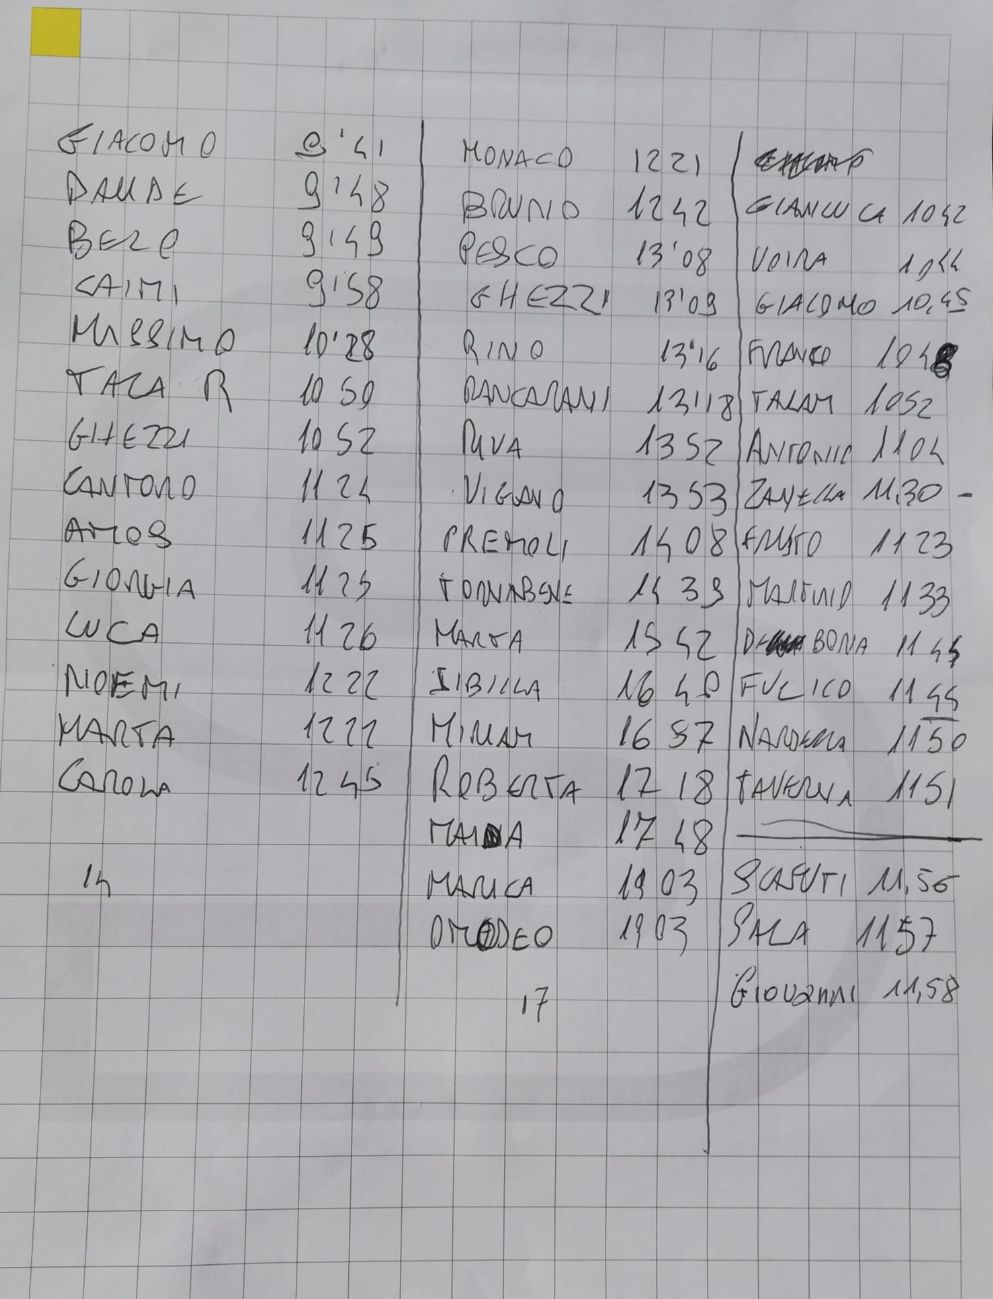 GIACOMO 9'41
DAVIDE 9'48
BERO 9'49
CAIMI 9'58
MASSIMO 10'28
TALA R 10 50
GHEZZI 10 52
CANTORO 11 24
AMOS 11 25
GIORGIA 11 25
LUCA 11 26
NOEMI 12 22
MARTA 12 22
CAROLA 12 45
14
MONACO 12 21
BRUNO 12 42
PESCO 13'08
GHEZZI 13'09
RINO 13'16
PANCARANI 13'18
RIVA 13 52
VIGANO 13 53
PREMOLI 14 08
TORNABENE 14 39
MARTA 15 42
SIBILLA 16 48
MIRIAM 16 57
ROBERTA 17 18
17 48
MARICA 19 03
OMODEO 19 03
17
GIANLUCA 10 42
VOIRA 10 44
GIACOMO 10,45
FRANCO 10 48
TALAM 10 52
ANTONIO 11 04
ZANELLA 11,30 -
FAUSTO 11 23
MARTINO 11 33
BONA 11 45
FULICO 11 45
NARDELLA 11 50
TAVERNA 11 51
SCAFUTI 11,56
SALA 11 57
GIOVANNI 11,58